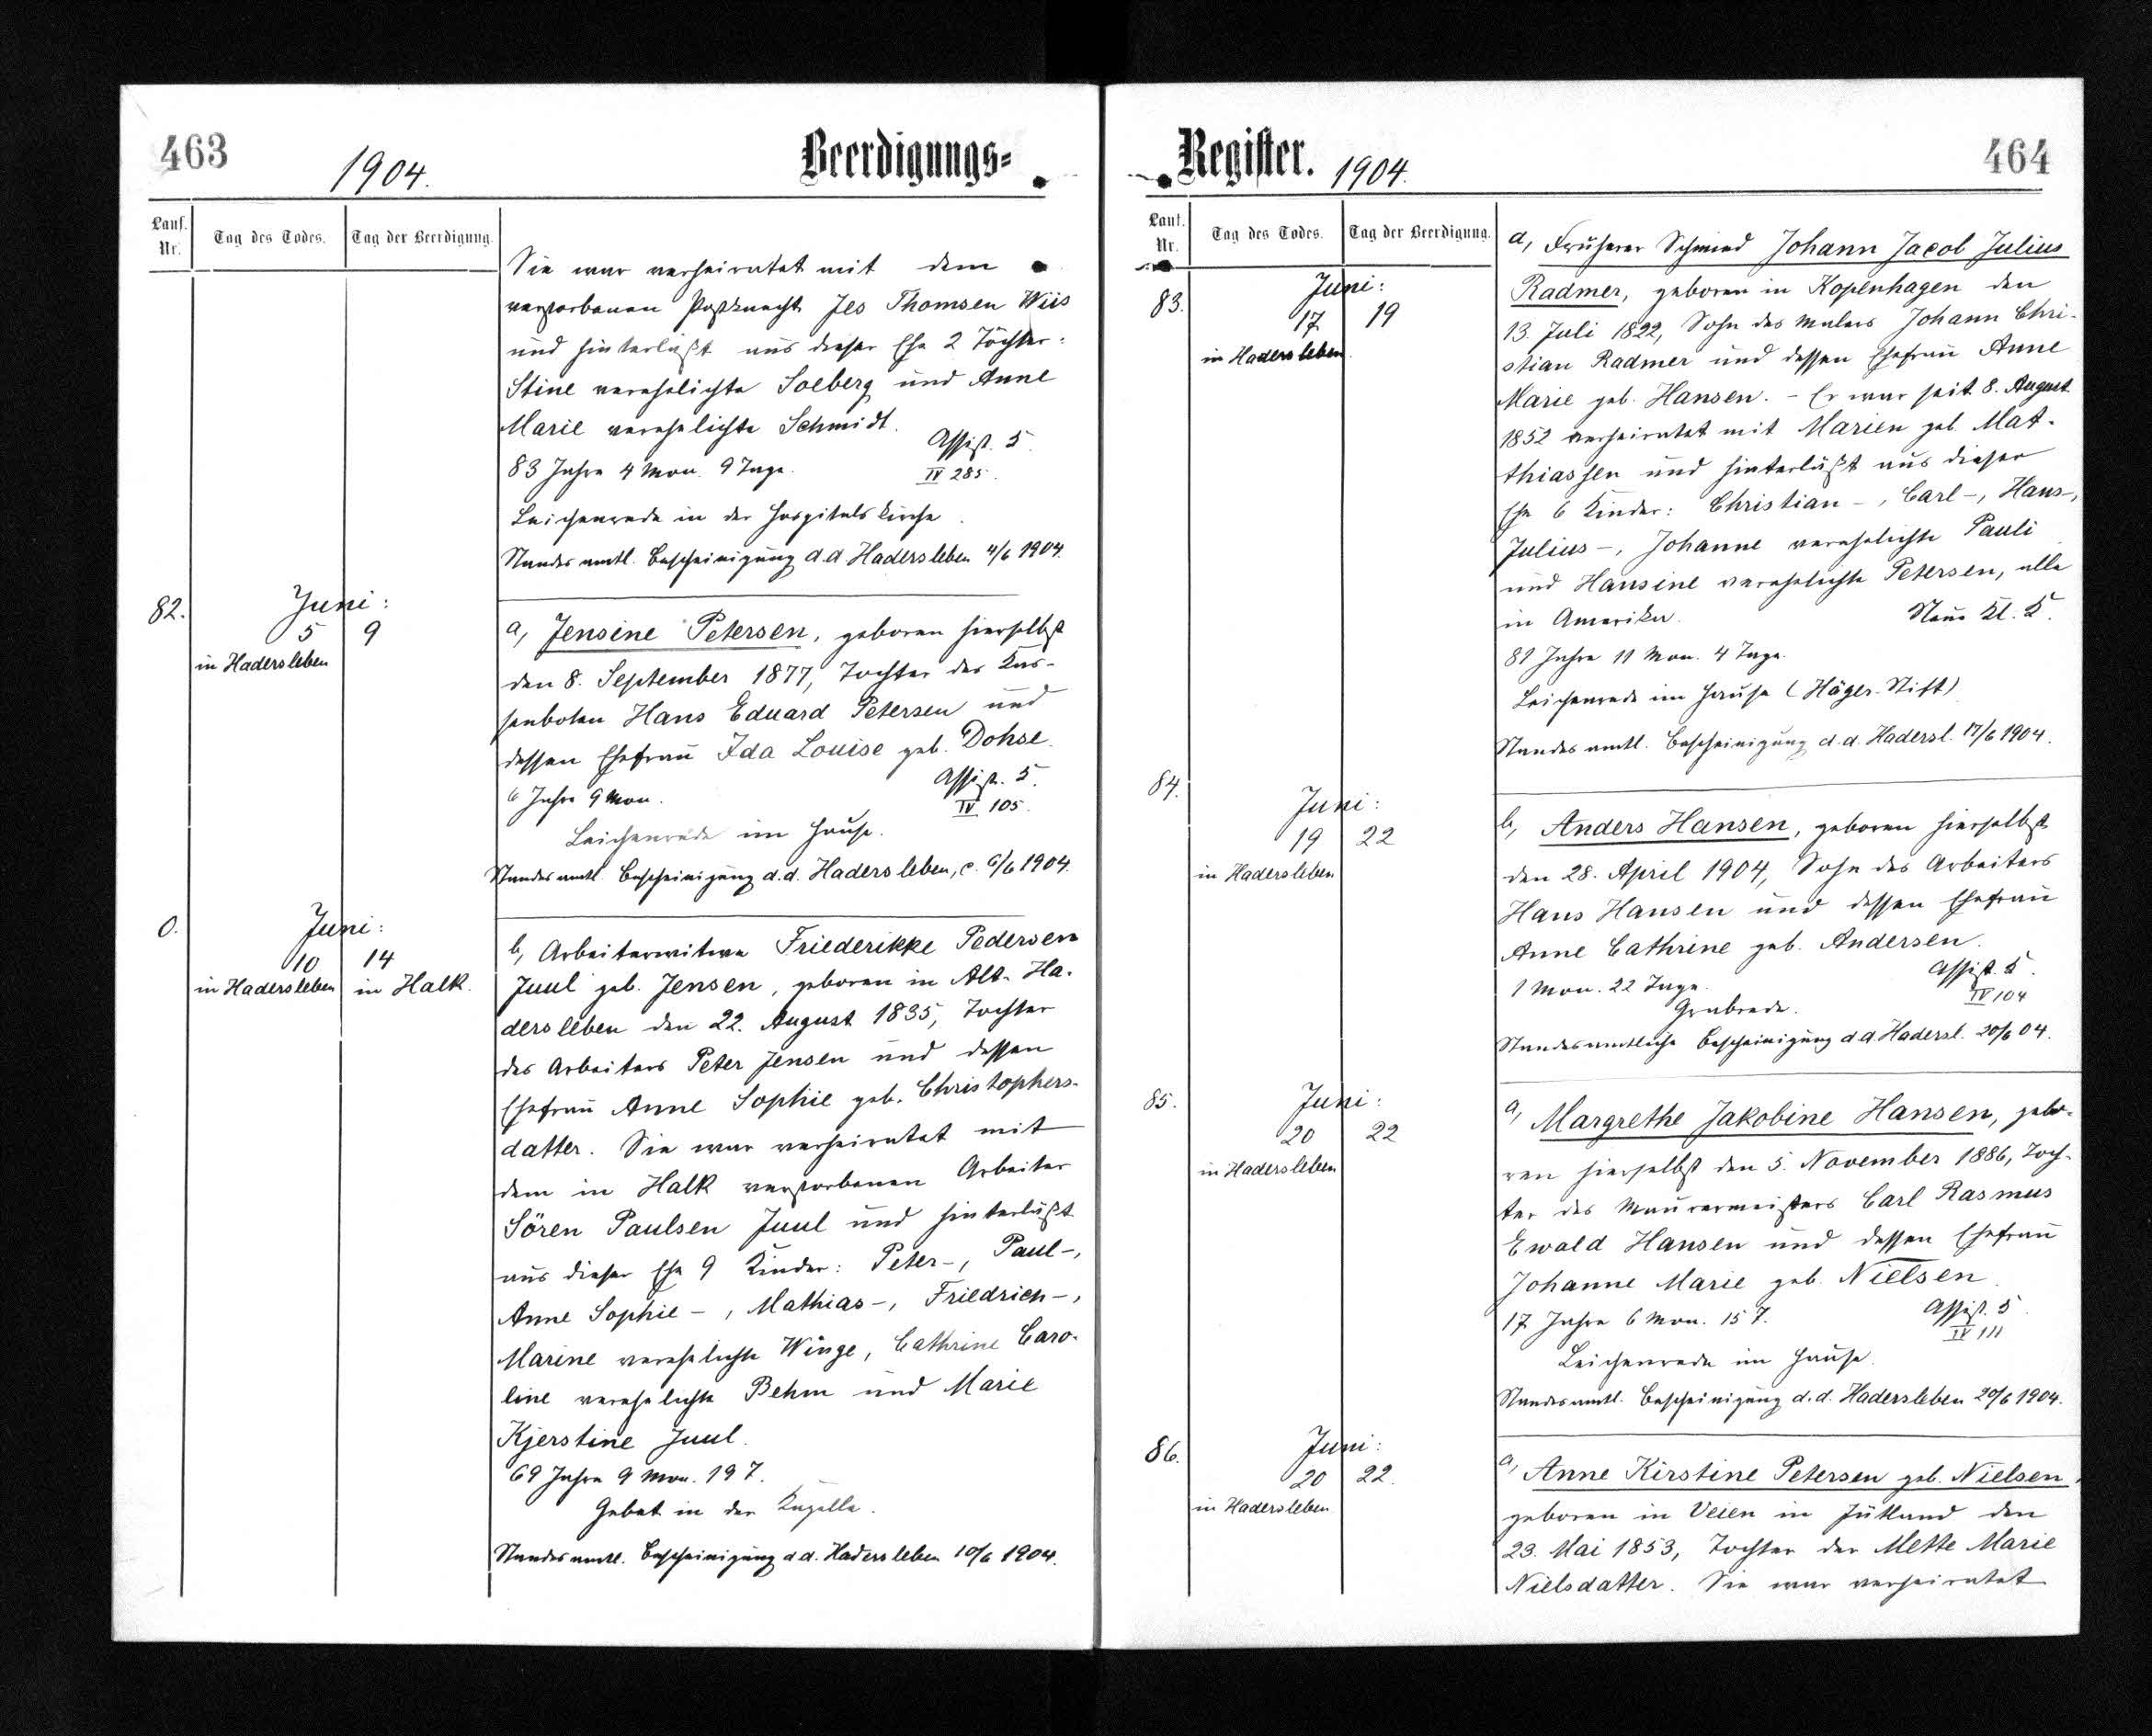 463
1904.
Beerdigungs=
Lauf. Nr.
Tag des Todes.
Tag der Beerdigung.
Sie war verheiratet mit dem
verstorbenen Postknecht Jes Thomsen Wiis
und hinterläßt aus dieser Ehe 2 Töchter:
Stine verehelichte Solberg und Anne
Marie verehelichte Schmidt.
Assist. 5.
83 Jahre 4 Mon. 9 Tage.
IV 285.
Leichenrede in der Hospitalskirche.
Standesamtl. Bescheinigung d.d. Hadersleben 4/6 1904.
82.
Juni:
5
9
in Hadersleben
a, Jensine Petersen, geboren hierselbst
den 8. September 1877, Tochter des Kas-
senboten Hans Eduard Petersen und
dessen Ehefrau Ida Louise geb. Dohse.
Assist. 5.
6 Jahre 9 Mon.
IV 105.
Leichenrede im Hause.
Standesamtl. Bescheinigung d.d. Hadersleben, 6/6 1904.
0.
Juni:
10
14
in Hadersleben
in Halk.
b, Arbeiterwitwe Friederikke Pedersen
Juul geb. Jensen, geboren in Alt-Ha-
dersleben den 22. August 1835, Tochter
des Arbeiters Peter Jensen und dessen
Ehefrau Anne Sophie geb. Christophers-
datter. Sie war verheiratet mit
dem in Halk verstorbenen Arbeiter
Sören Paulsen Juul und hinterläßt
aus dieser Ehe 9 Kinder: Peter-, Paul-,
Anne Sophie-, Mathias-, Friedrich-,
Marine verehelichte Winge, Cathrine Caro-
line verehelichte Behm und Marie
Kjerstine Juul.
69 Jahre 9 Mon. 19 T.
Gebet in der Kapelle.
Standesamtl. Bescheinigung d.d. Hadersleben 10/6 1904.
Register.
1904.
464
Lauf. Nr.
Tag des Todes.
Tag der Beerdigung.
83.
Juni:
17
19
in Hadersleben.
a, Früherer Schmied Johann Jacob Julius
Radmer, geboren in Kopenhagen den
13. Juli 1822, Sohn des Malers Johann Chri-
stian Radmer und dessen Ehefrau Anne
Marie geb. Hansen. - Er war seit 8. August
1852 verheiratet mit Marien geb. Mat-
thiassen und hinterläßt aus dieser
Ehe 6 Kinder: Christian-, Carl-, Hans-,
Julius-, Johanne verehelichte Pauli
und Hansine verehelichte Petersen, alle
in Amerika.
Neue Kl. 5.
81 Jahre 11 Mon. 4 Tage.
Leichenrede im Hause (Häger-Stift)
Standesamtl. Bescheinigung d.d. Hadersl. 17/6 1904.
84.
Juni:
19
22
in Hadersleben
b, Anders Hansen, geboren hierselbst
den 28. April 1904, Sohn des Arbeiters
Hans Hansen und dessen Ehefrau
Anne Cathrine geb. Andersen.
Assist. 5.
1 Mon. 22 Tage.
IV 104
Grabrede.
Standesamtliche Bescheinigung d.d. Hadersl. 20/6 04.
85.
Juni:
20
22
in Hadersleben
a, Margrethe Jakobine Hansen, gebo-
ren hierselbst den 5. November 1886, Toch-
ter des Maurermeisters Carl Rasmus
Ewald Hansen und dessen Ehefrau
Johanne Marie geb. Nielsen.
Assist. 5.
17 Jahre 6 Mon. 15 T.
IV 111
Leichenrede im Hause.
Standesamtl. Bescheinigung d.d. Hadersleben 20/6 1904.
86.
Juni:
20
22.
in Hadersleben
a, Anne Kirstine Petersen geb. Nielsen,
geboren in Veien in Jütland den
23. Mai 1853, Tochter der Mette Marie
Nielsdatter. Sie war verheiratet